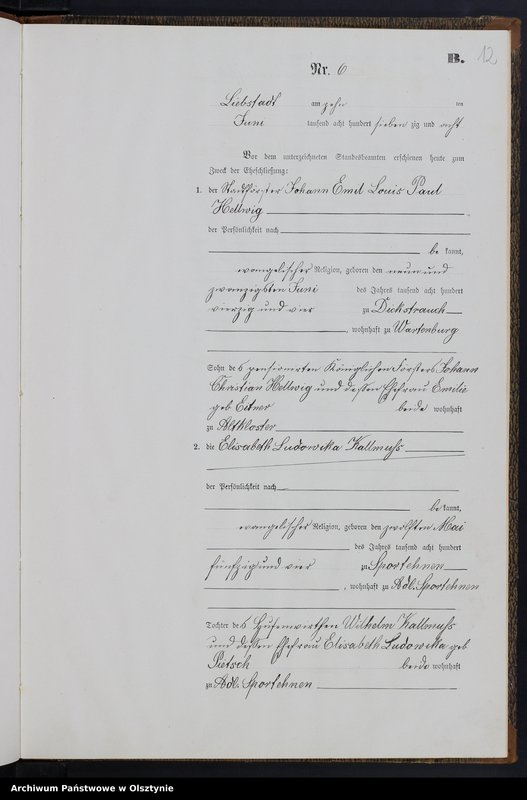 B. 12
Nr. 6
Liebstadt am zehn ten
Juni tausend acht hundert sieben zig und acht
Vor dem unterzeichneten Standesbeamten erschienen heute zum
Zweck der Eheschließung:
1. der Stadtförster Johann Emil Louis Paul
Hellwig
der Persönlichkeit nach
be kannt,
evangelischer Religion, geboren den neun und
zwanzigsten Juni des Jahres tausend acht hundert
vierzig und vier zu Dickstrauch
, wohnhaft zu Wartenburg
Sohn des pensionirten Königlichen Försters Johann
Christian Hellwig und dessen Ehefrau Emilie
geb Eitner beide wohnhaft
zu Altkloster
2. die Elisabeth Ludowika Kallmuß
der Persönlichkeit nach
be kannt,
evangelischer Religion, geboren den zwölften Mai
des Jahres tausend acht hundert
fünfzig und vier zu Sportehnen
, wohnhaft zu Adl. Sportehnen
Tochter des Hufenwirthen Wilhelm Kallmuß
und dessen Ehefrau Elisabeth Ludowika geb
Pietsch beide wohnhaft
zu Adl. Sportehnen
Archiwum Państwowe w Olsztynie